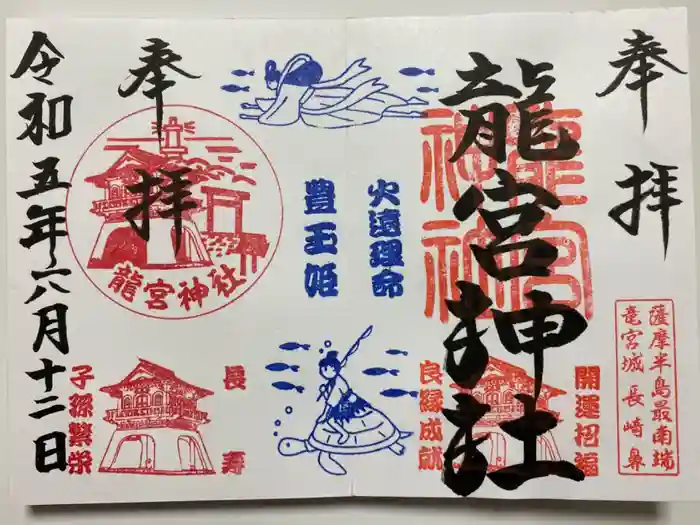 奉拝
龍宮神社
龍宮神社
薩摩半島最南端
竜宮城 長崎鼻
開運招福
良縁成就
火遠理命
豊玉姫
奉拝
龍宮神社
長寿
子孫繁栄
令和五年六月十二日